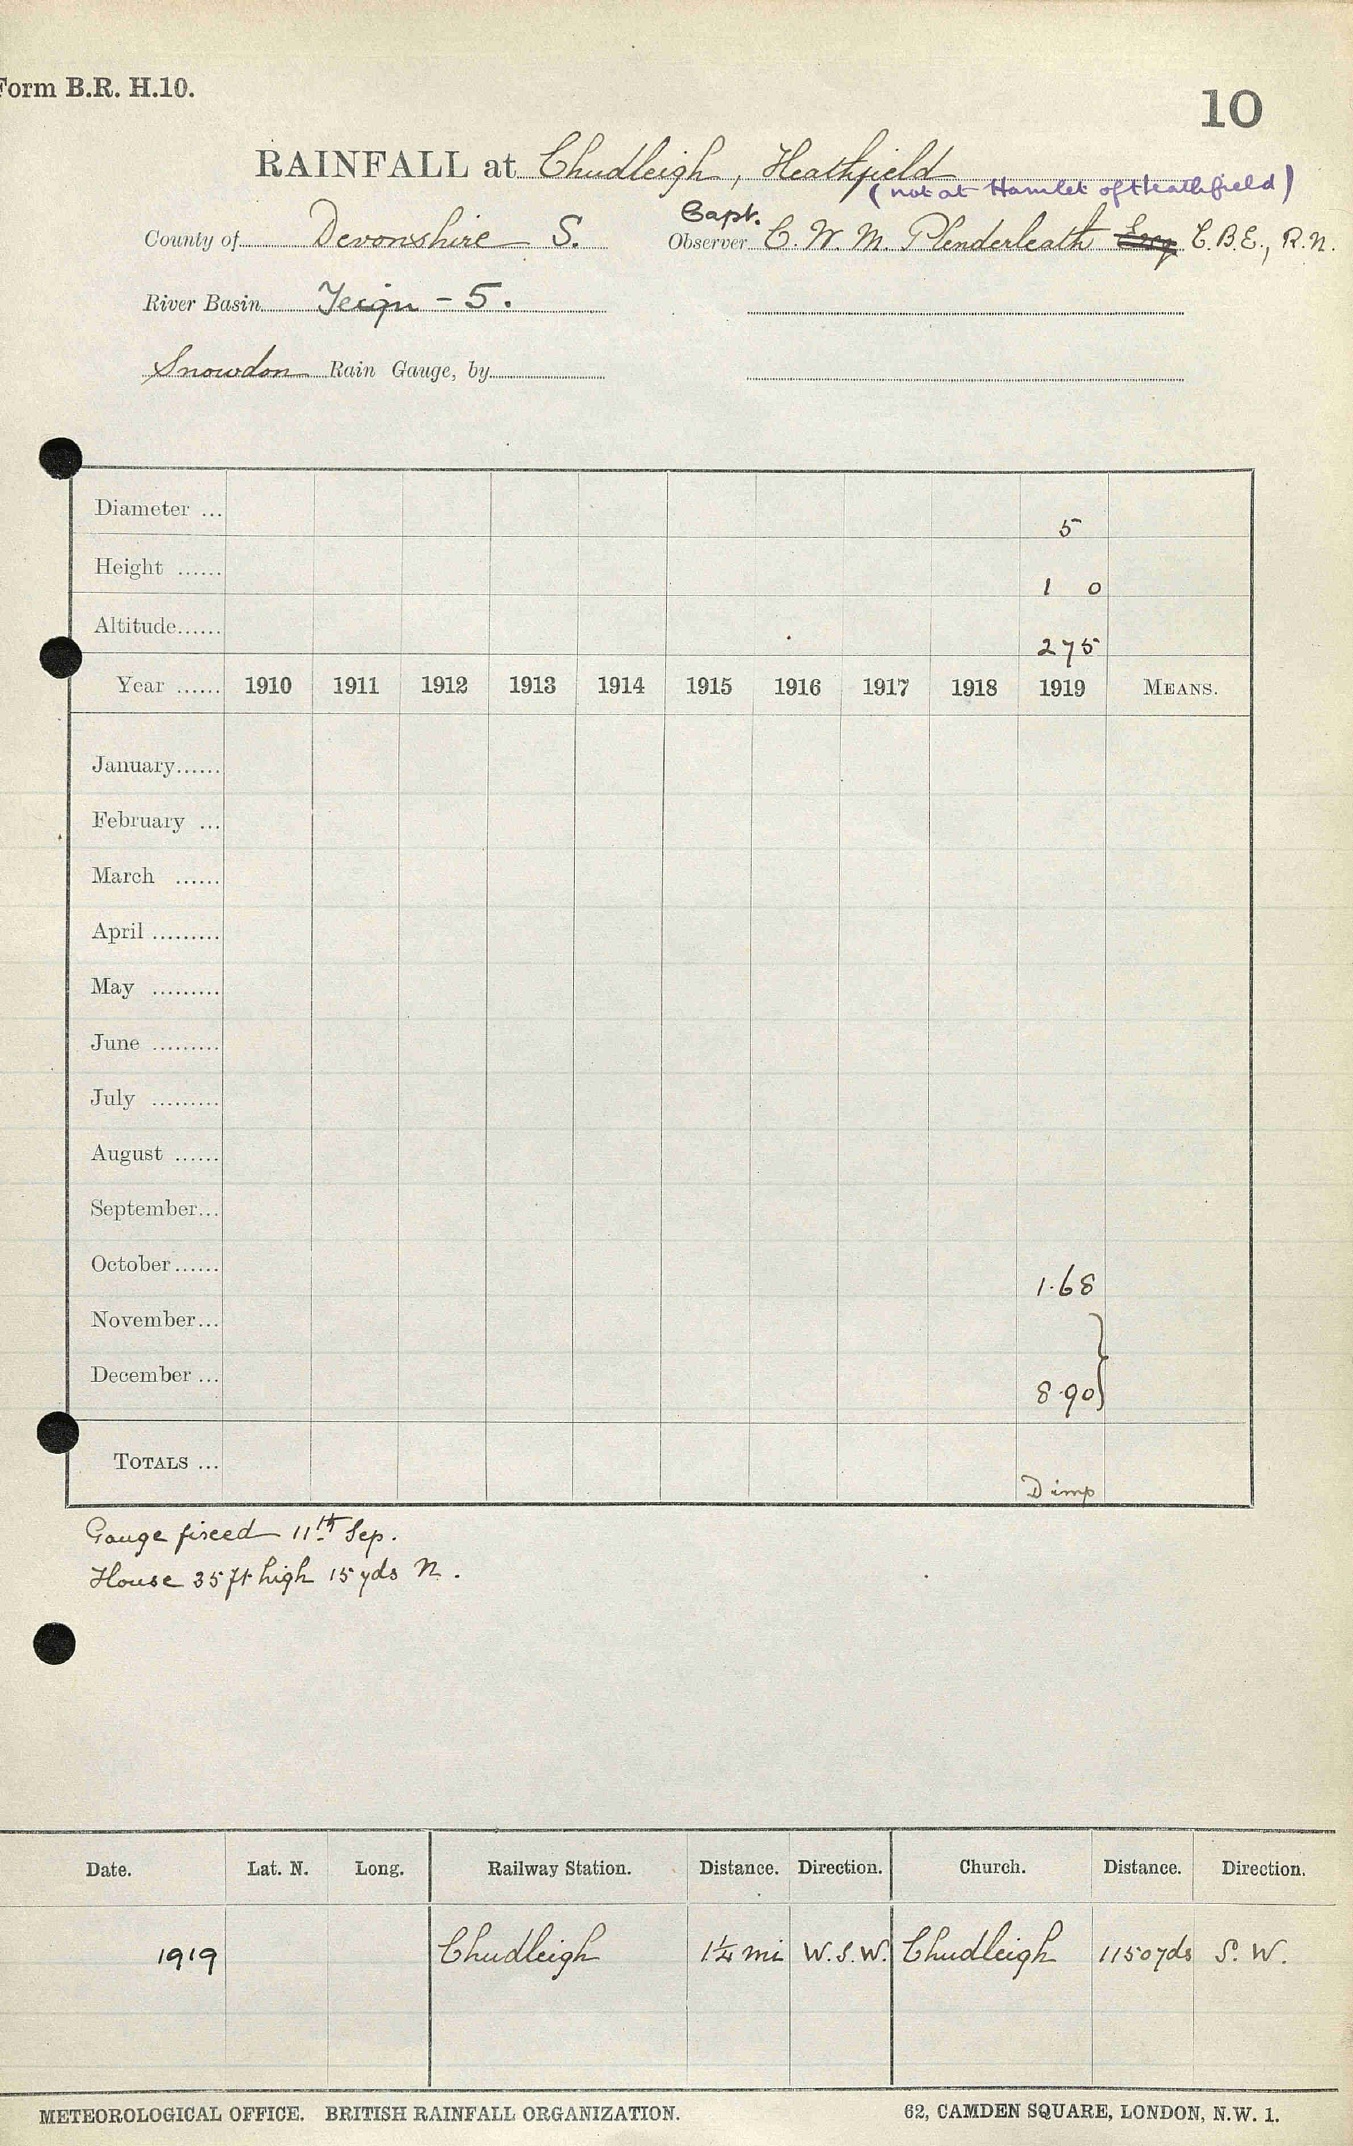 Form B.R. H.10.
10
RAINFALL at Chudleigh, Heathfield
(not at Hamlet of Heathfield)
County of Devonshire S.
Capt.
Observer C. W. M. Plenderleath Esq C.B.E., R.N.
River Basin Teign - 5.
Snowdon Rain Gauge, by
Diameter ... 5
Height ...... 1 0
Altitude...... 275
Year ...... 1910 1911 1912 1913 1914 1915 1916 1917 1918 1919 MEANS.
January......
February ...
March ......
April .........
May .........
June .........
July .........
August ......
September...
October...... 1.68
November...
December ... 8.90}
TOTALS ... D imp
Gauge fixed 11th Sep.
House 35 ft high 15 yds N.
Date. Lat. N. Long. Railway Station. Distance. Direction. Church. Distance. Direction.
1919 Chudleigh 1¼ mi W.S.W. Chudleigh 1150 yds S.W.
METEOROLOGICAL OFFICE. BRITISH RAINFALL ORGANIZATION. 62, CAMDEN SQUARE, LONDON, N.W. 1.